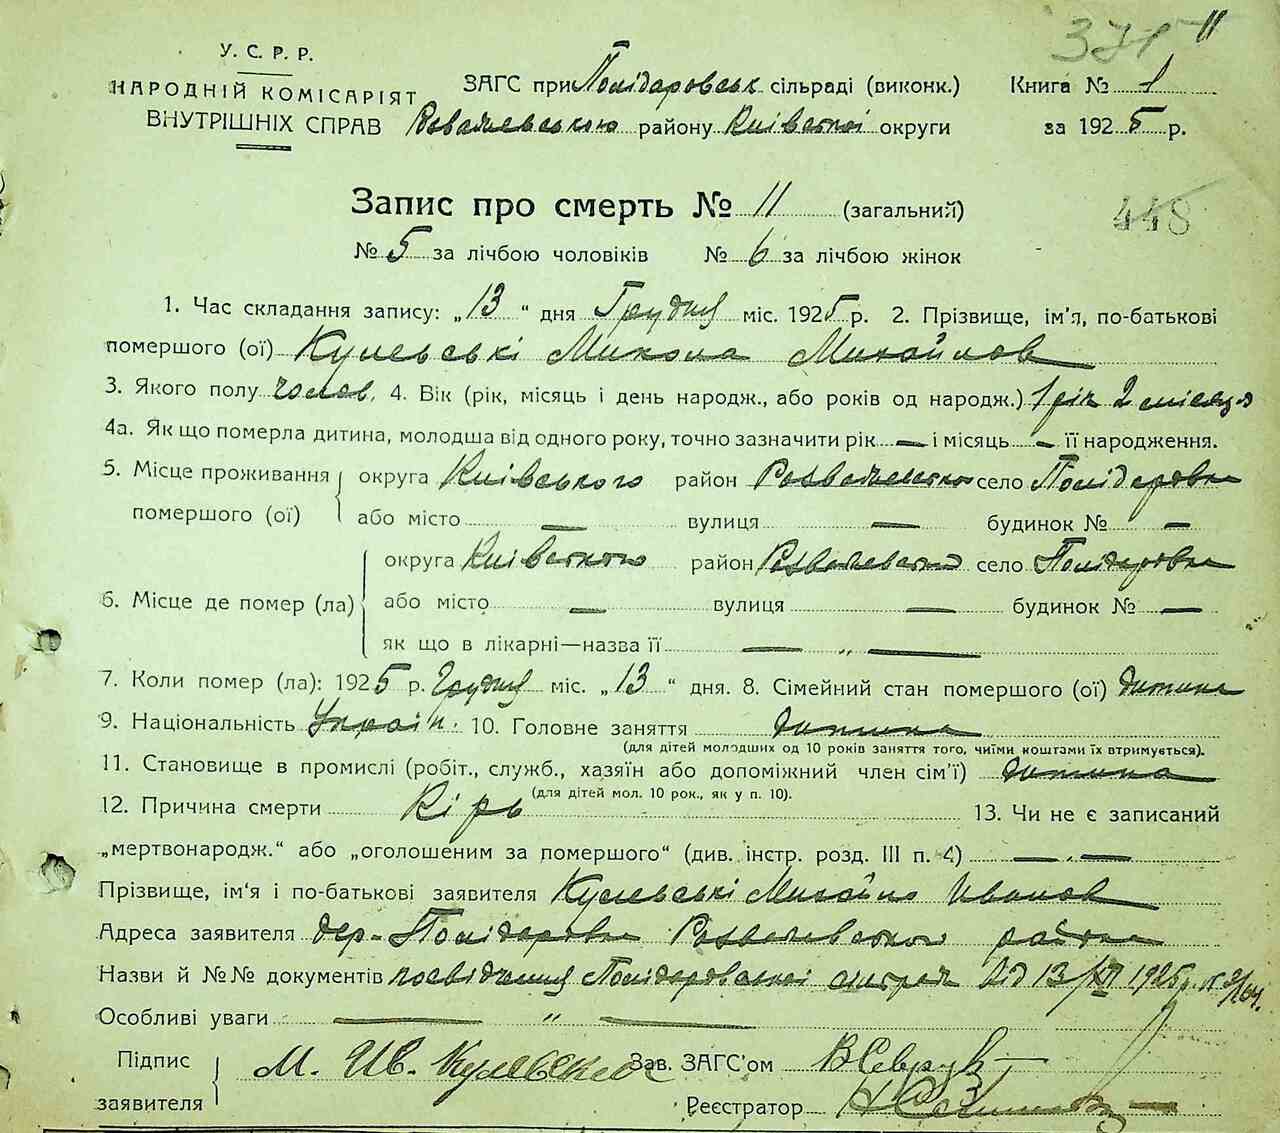 371 11
У. С. Р. Р.
НАРОДНІЙ КОМІСАРІЯТ
ВНУТРІШНІХ СПРАВ
ЗАГС при Полідаровськ сільраді (виконк.) Книга № 1
району Київської округи за 1925 р.
Запис про смерть № 11 (загальний)
448
№ 5 за лічбою чоловіків № 6 за лічбою жінок
1. Час складання запису: „13“ дня Грудня міс. 1925 р. 2. Прізвище, ім'я, по-батькові
помершого (ої) Кулевські Микола Михайлов
3. Якого полу чолов. 4. Вік (рік, місяць і день народж., або років од народж.) 1 рік 2 місяця
4а. Як що померла дитина, молодша від одного року, точно зазначити рік — і місяць — її народження.
5. Місце проживання помершого (ої)
округа Київського район село Полідаровка
або місто — вулиця — будинок № —
6. Місце де помер (ла)
округа Київського район село Полідаровка
або місто — вулиця — будинок № —
як що в лікарні—назва її — „ —
7. Коли помер (ла): 1925 р. Грудня міс. „13“ дня. 8. Сімейний стан помершого (ої) дитина
9. Національність Україн. 10. Головне заняття дитина
(для дітей молодших од 10 років заняття того, чиїми коштами їх втримується).
11. Становище в промислі (робіт., служб., хазяїн або допоміжний член сім'ї) дитина
(для дітей мол. 10 рок., як у п. 10).
12. Причина смерти Кірь 13. Чи не є записаний
„мертвонародж.“ або „оголошеним за помершого“ (див. інстр. розд. III п. 4) — . —
Прізвище, ім'я і по-батькові заявителя Кулевські Михайло Иванов
Адреса заявителя дер- Полідаровка района
Назви й №№ документів посвідчення Полідаровської від 13/XII 1925 р.
Особливі уваги — „ —
Підпис заявителя М. Ив. Кулевский
Зав. ЗАГС'ом
Реєстратор